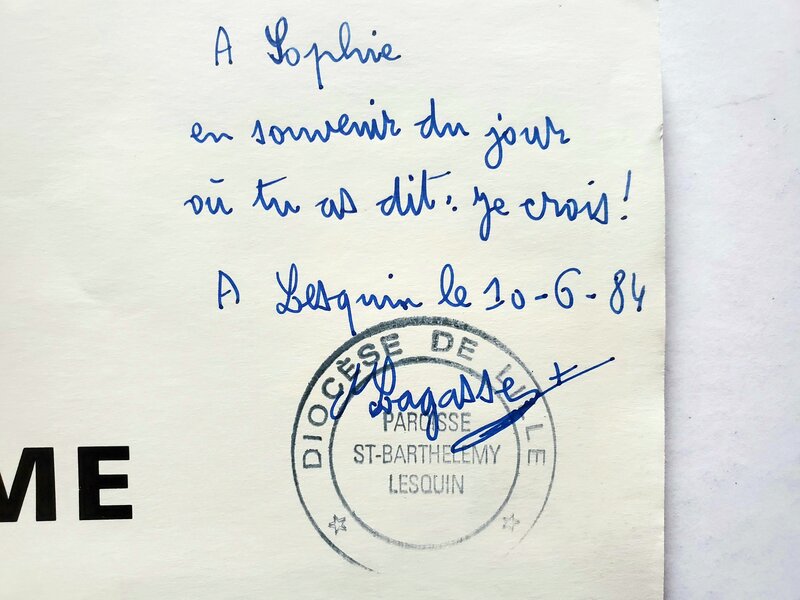 A Sophie
en souvenir du jour
où tu as dit : je crois !
A Lesquin le 10-6-84
Lagasse +
DIOCÈSE DE LILLE
PAROISSE
ST-BARTHELEMY
LESQUIN
ME